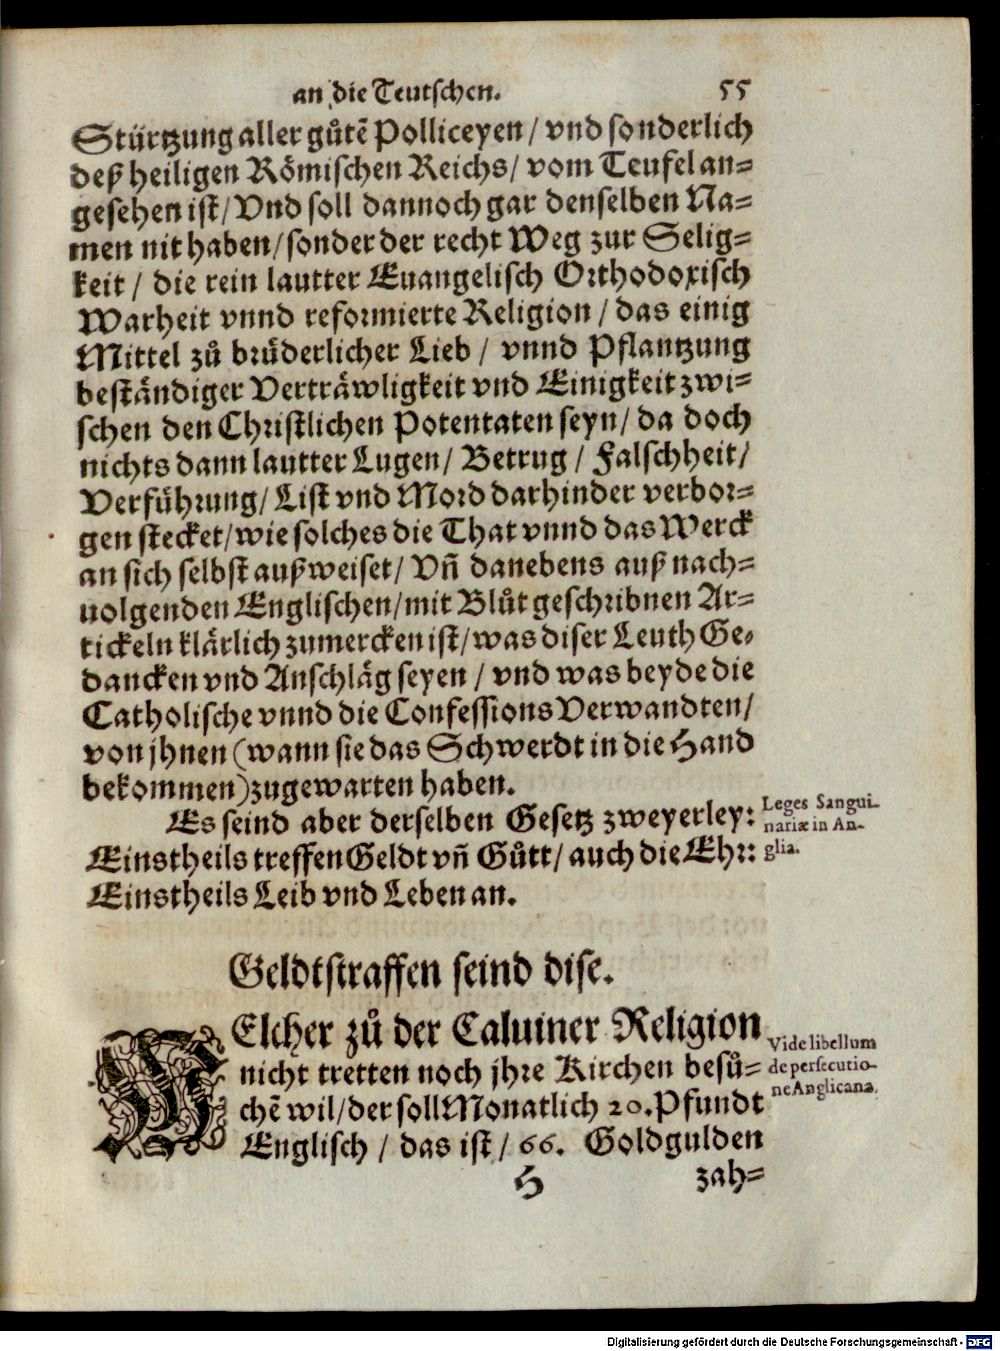 an die Teutschen. 55
Stürtzung aller gůtẽ Polliceyen / vnd sonderlich
deß heiligen Römischen Reichs / vom Teufel an=
gesehen ist / Vnd soll dannoch gar denselben Na=
men nit haben / sonder der recht Weg zur Selig=
keit / die rein lautter Euangelisch Orthodoxisch
Warheit vnnd reformierte Religion / das einig
Mittel zů brůderlicher Lieb / vnnd Pflantzung
beständiger Verträwligkeit vnd Einigkeit zwi=
schen den Christlichen Potentaten seyn / da doch
nichts dann lautter Lugen / Betrug / Falschheit /
Verführung / List vnd Mord darhinder verbor=
gen stecket / wie solches die That vnnd das Werck
an sich selbst außweiset / Vñ danebens auß nach=
uolgenden Englischen / mit Blůt geschribnen Ar=
tickeln klärlich zumercken ist / was diser Leuth Ge=
dancken vnd Anschläg seyen / vnd was beyde die
Catholische vnnd die Confessions Verwandten /
von jhnen (wann sie das Schwerdt in die Hand
bekommen) zugewarten haben.
Es seind aber derselben Gesetz zweyerley:
Einstheils treffen Geldt vñ Gůtt / auch die Ehr:
Einstheils Leib vnd Leben an.
Leges Sangui-
nariæ in An-
glia.
Geldtstraffen seind dise.
WElcher zů der Caluiner Religion
nicht tretten noch jhre Kirchen besů=
chẽ wil / der soll Monatlich 20. Pfundt
Englisch / das ist / 66. Goldgulden
Vide libellum
de persecutio-
ne Anglicana.
H zah=
Digitalisierung gefördert durch die Deutsche Forschungsgemeinschaft - DFG